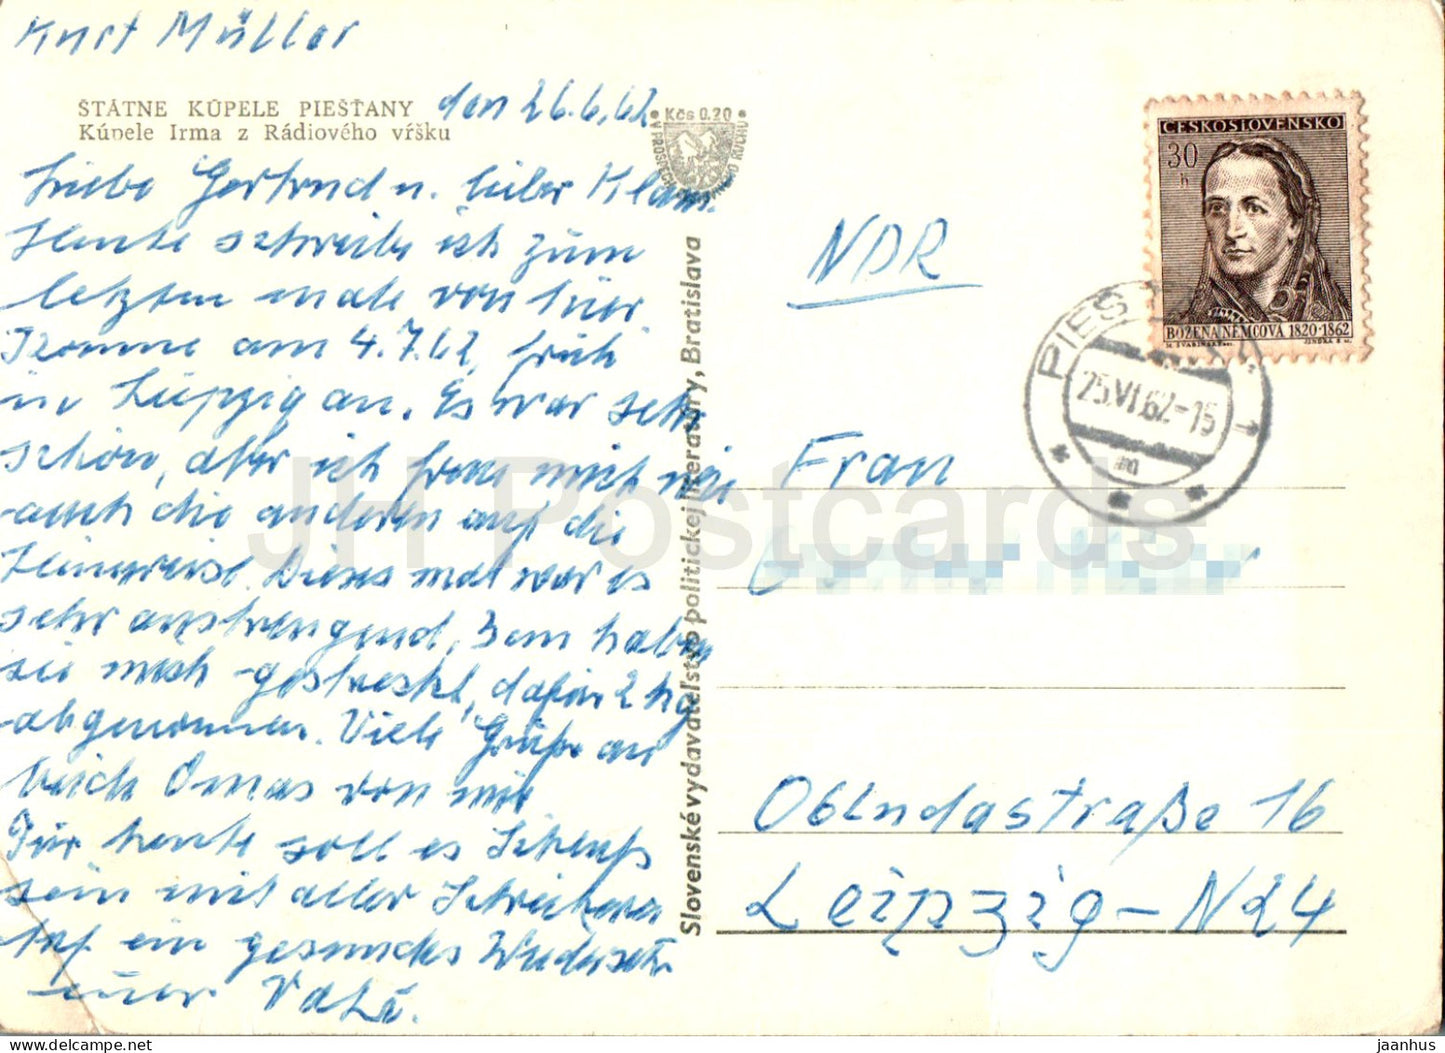 Kurt Müller
ŠTÁTNE KÚPELE PIEŠŤANY
Kúpele Irma z Rádiového vŕšku
den 26.6.62
Kčs 0.20
Liebe Gertrud u. lieber Klaus.
Heute schreibe ich zum
letzten male von hier
Komme am 4.7.62 früh
in Leipzig an. Es war sehr
schön, aber ich freue mich wie
auch die anderen auf die
Heimreise. Dieses mal war es
sehr anstrengend,
sie mich gestreckt, dafür 2 kg
abgenommen. Viele Grüße an
beide Omas von mir
Für heute soll es Schluß
sein mit aller Schreiberei
Auf ein gesundes Wiedersehn
euer Vati.
Slovenské vydavateľstvo politickej literatúry, Bratislava
ČESKOSLOVENSKO
30
h
BOŽENA NĚMCOVÁ 1820-1862
M. ŠVABINSKÝ JINDRA S
25.VI.62-15
1
NDR
Frau
Oblndastraße 16
Leipzig-N24
JH Postcards
delcampe.net
jaanhus